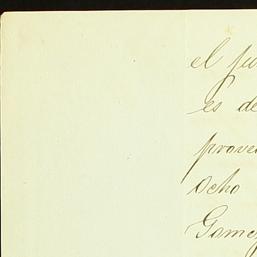 el ju
es de
prove
Ocho
Gome